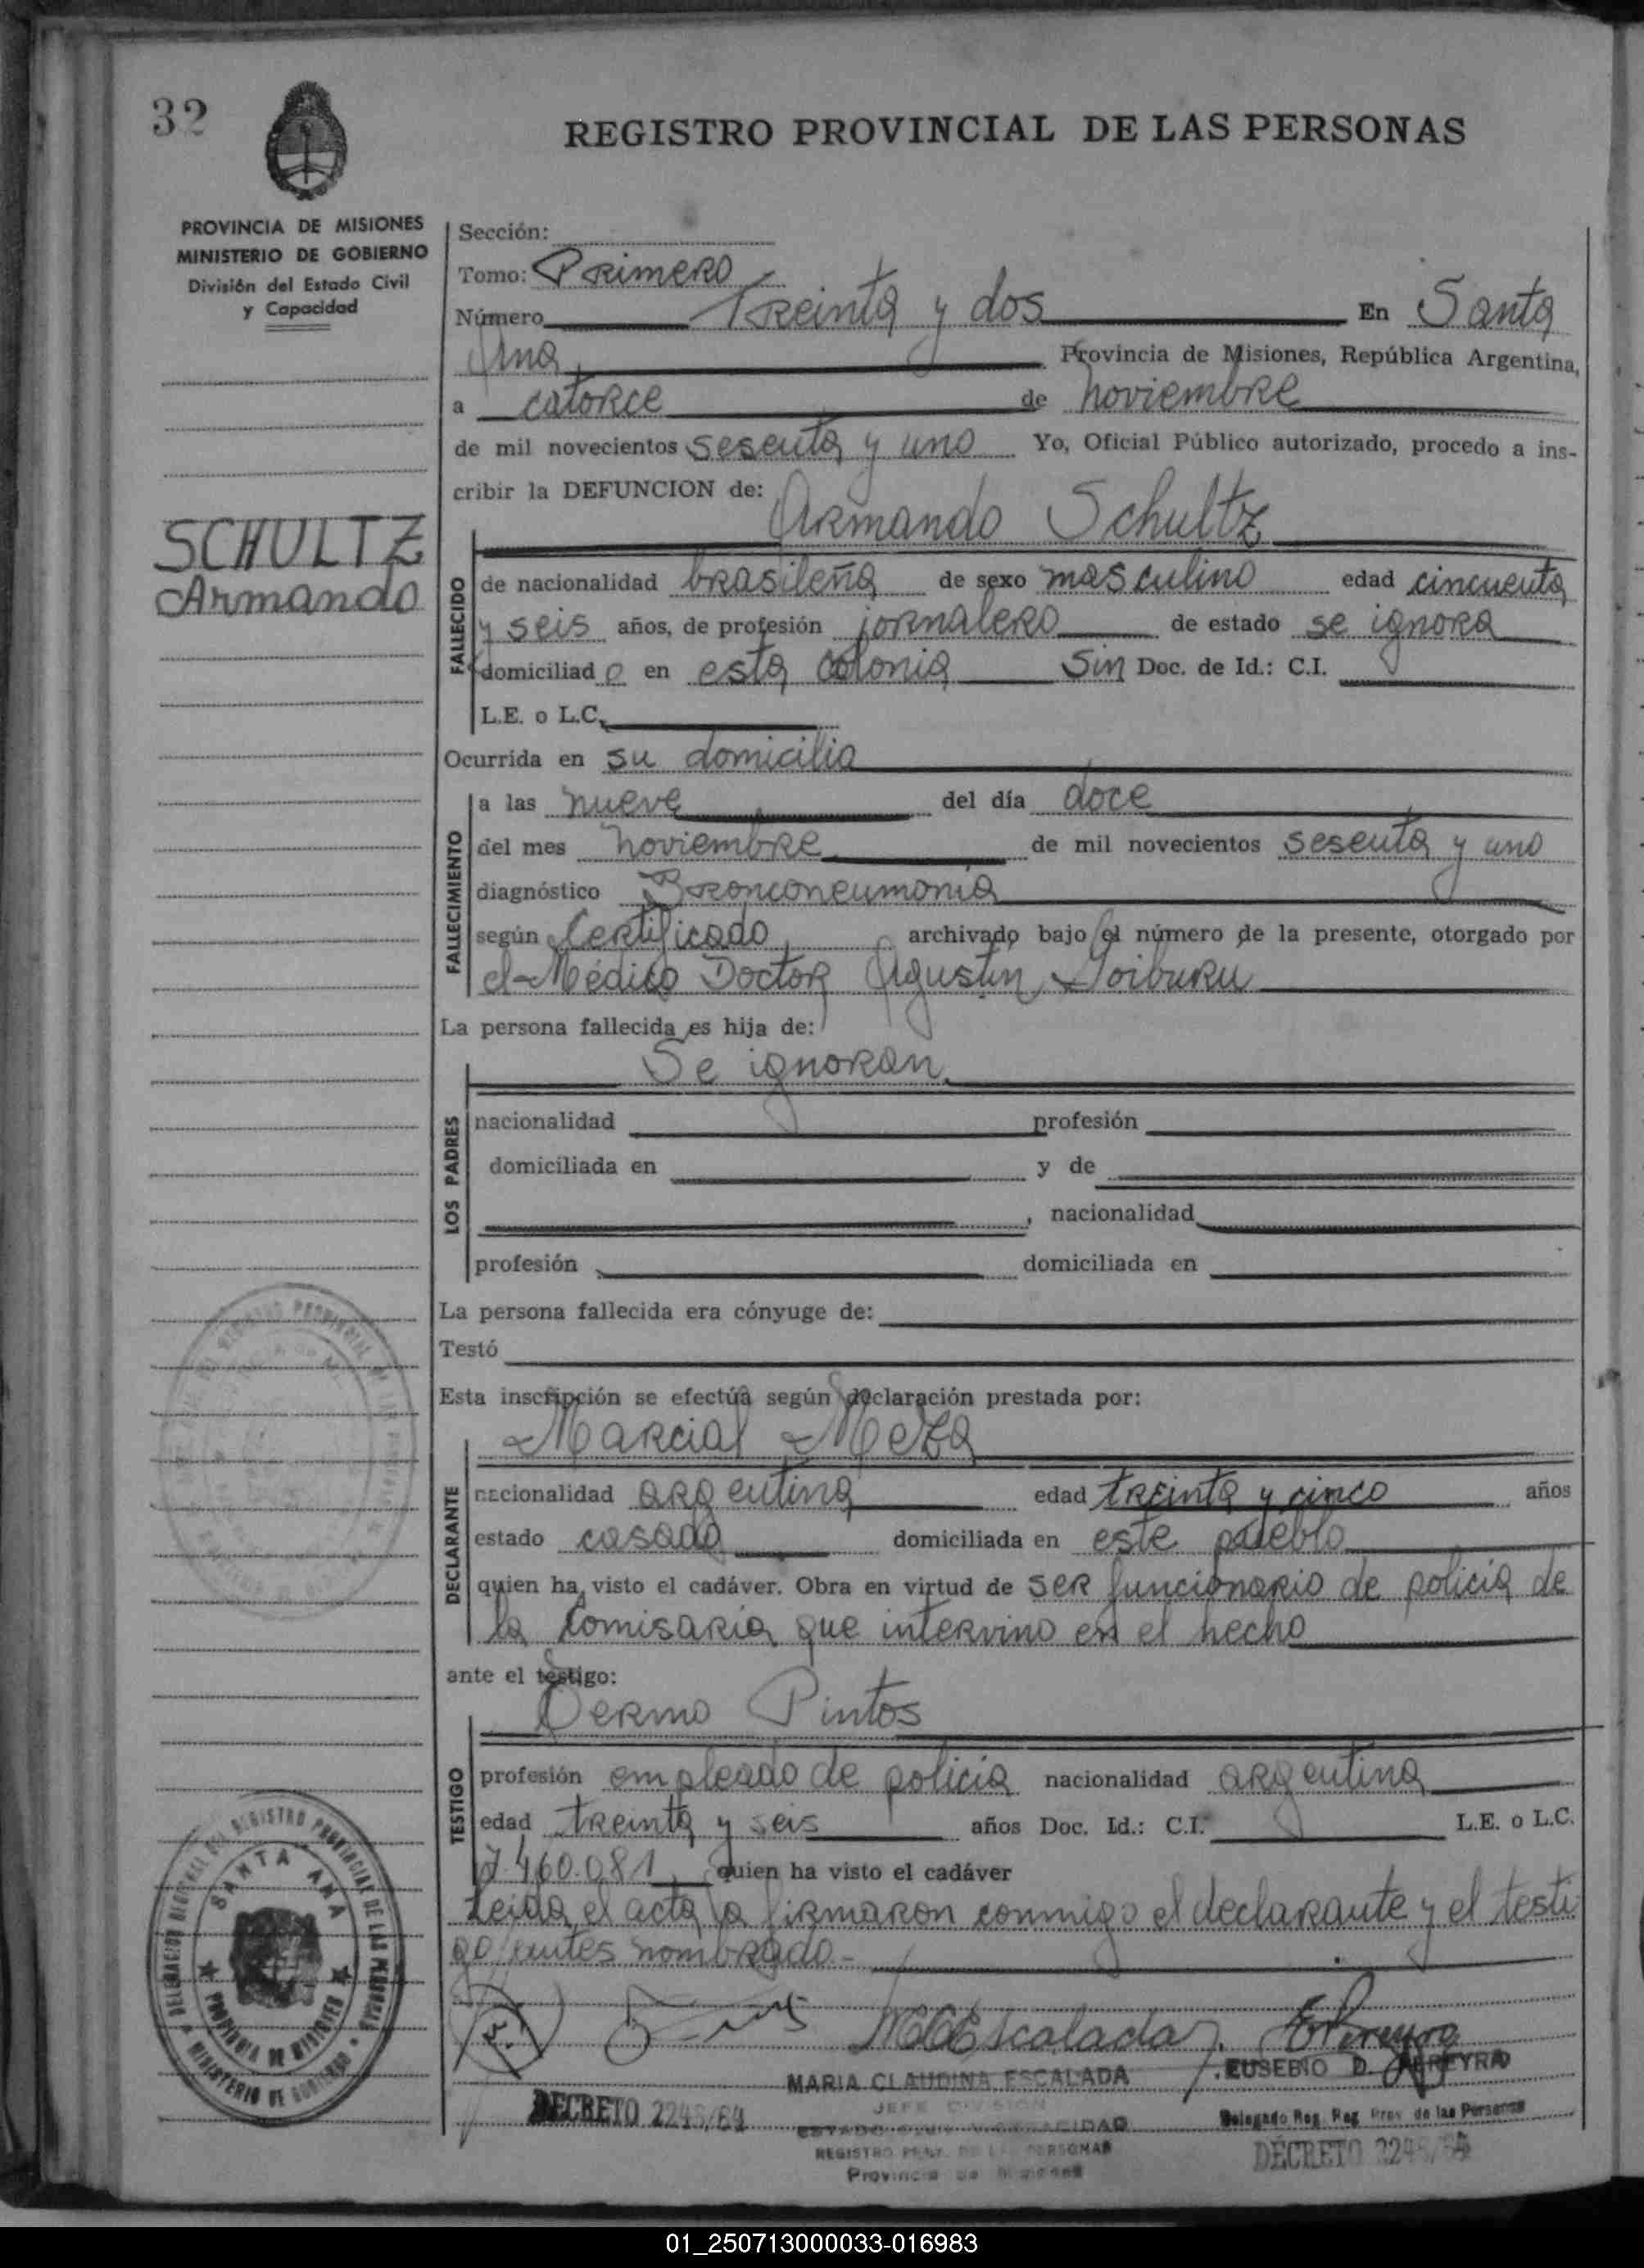 32
REGISTRO PROVINCIAL DE LAS PERSONAS
PROVINCIA DE MISIONES
MINISTERIO DE GOBIERNO
División del Estado Civil
y Capacidad
SCHULTZ
Armando
Sección:
Tomo: Primero
Número Treinta y dos En Santa
Ana Provincia de Misiones, República Argentina,
a catorce de noviembre
de mil novecientos sesenta y uno Yo, Oficial Público autorizado, procedo a ins-
cribir la DEFUNCION de:
Armando Schultz
FALLECIDO
de nacionalidad brasileña de sexo masculino edad cincuenta
y seis años, de profesión jornalero de estado se ignora
domiciliad o en esta colonia Sin Doc. de Id.: C.I.
L.E. o L.C.
Ocurrida en su domicilio
FALLECIMIENTO
a las nueve del día doce
del mes noviembre de mil novecientos sesenta y uno
diagnóstico Bronconeumonia
según Certificado archivado bajo el número de la presente, otorgado por
el Médico Doctor Agustin Goiburu
La persona fallecida es hija de:
Se ignoran
LOS PADRES
nacionalidad profesión
domiciliada en y de
, nacionalidad
profesión domiciliada en
La persona fallecida era cónyuge de:
Testó
Esta inscripción se efectúa según declaración prestada por:
Marcial Meza
DECLARANTE
nacionalidad argentina edad treinta y cinco años
estado casado domiciliada en este pueblo
quien ha visto el cadáver. Obra en virtud de ser funcionario de policia de
la Comisaria que intervino en el hecho
ante el testigo:
Dermo Pintos
TESTIGO
profesión empleado de policia nacionalidad argentina
edad treinta y seis años Doc. Id.: C.I. L.E. o L.C.
7.460.081 quien ha visto el cadáver
Leida el acta la firmaron conmigo el declarante y el testi
go antes nombrado.-
DELEGACION REGISTRO PROVINCIAL DE LAS PERSONAS
SANTA ANA
PROVINCIA DE MISIONES
MINISTERIO DE GOBIERNO
MCEscalada
MARIA CLAUDINA ESCALADA
JEFE DIVISION
ESTADO CIVIL Y CAPACIDAD
REGISTRO PROV. DE LAS PERSONAS
Provincia de Misiones
EUSEBIO D. PEREYRA
Delegado Reg. Reg. Prov. de las Personas
DECRETO 2245/64
DECRETO 2245/64
01_250713000033-016983